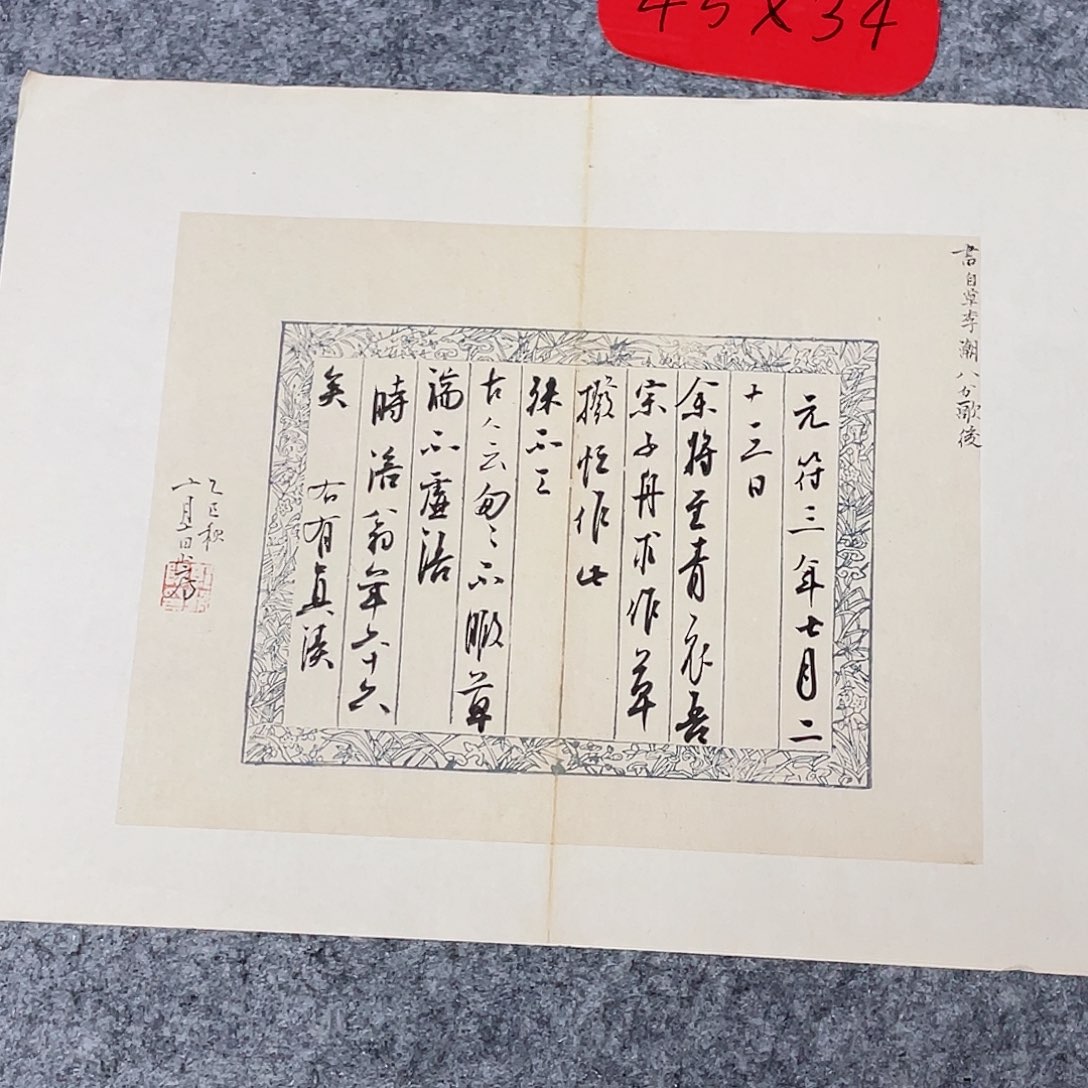 45X34
書自草李潮八分歌後
元符三年七月二
十三日
余將至青衣吾
宗子舟求作草
撥忙作此
殊不工
古人云匆〻不暇草
端不虛語
時涪翁年五十六
矣 右有真
乙巳秋